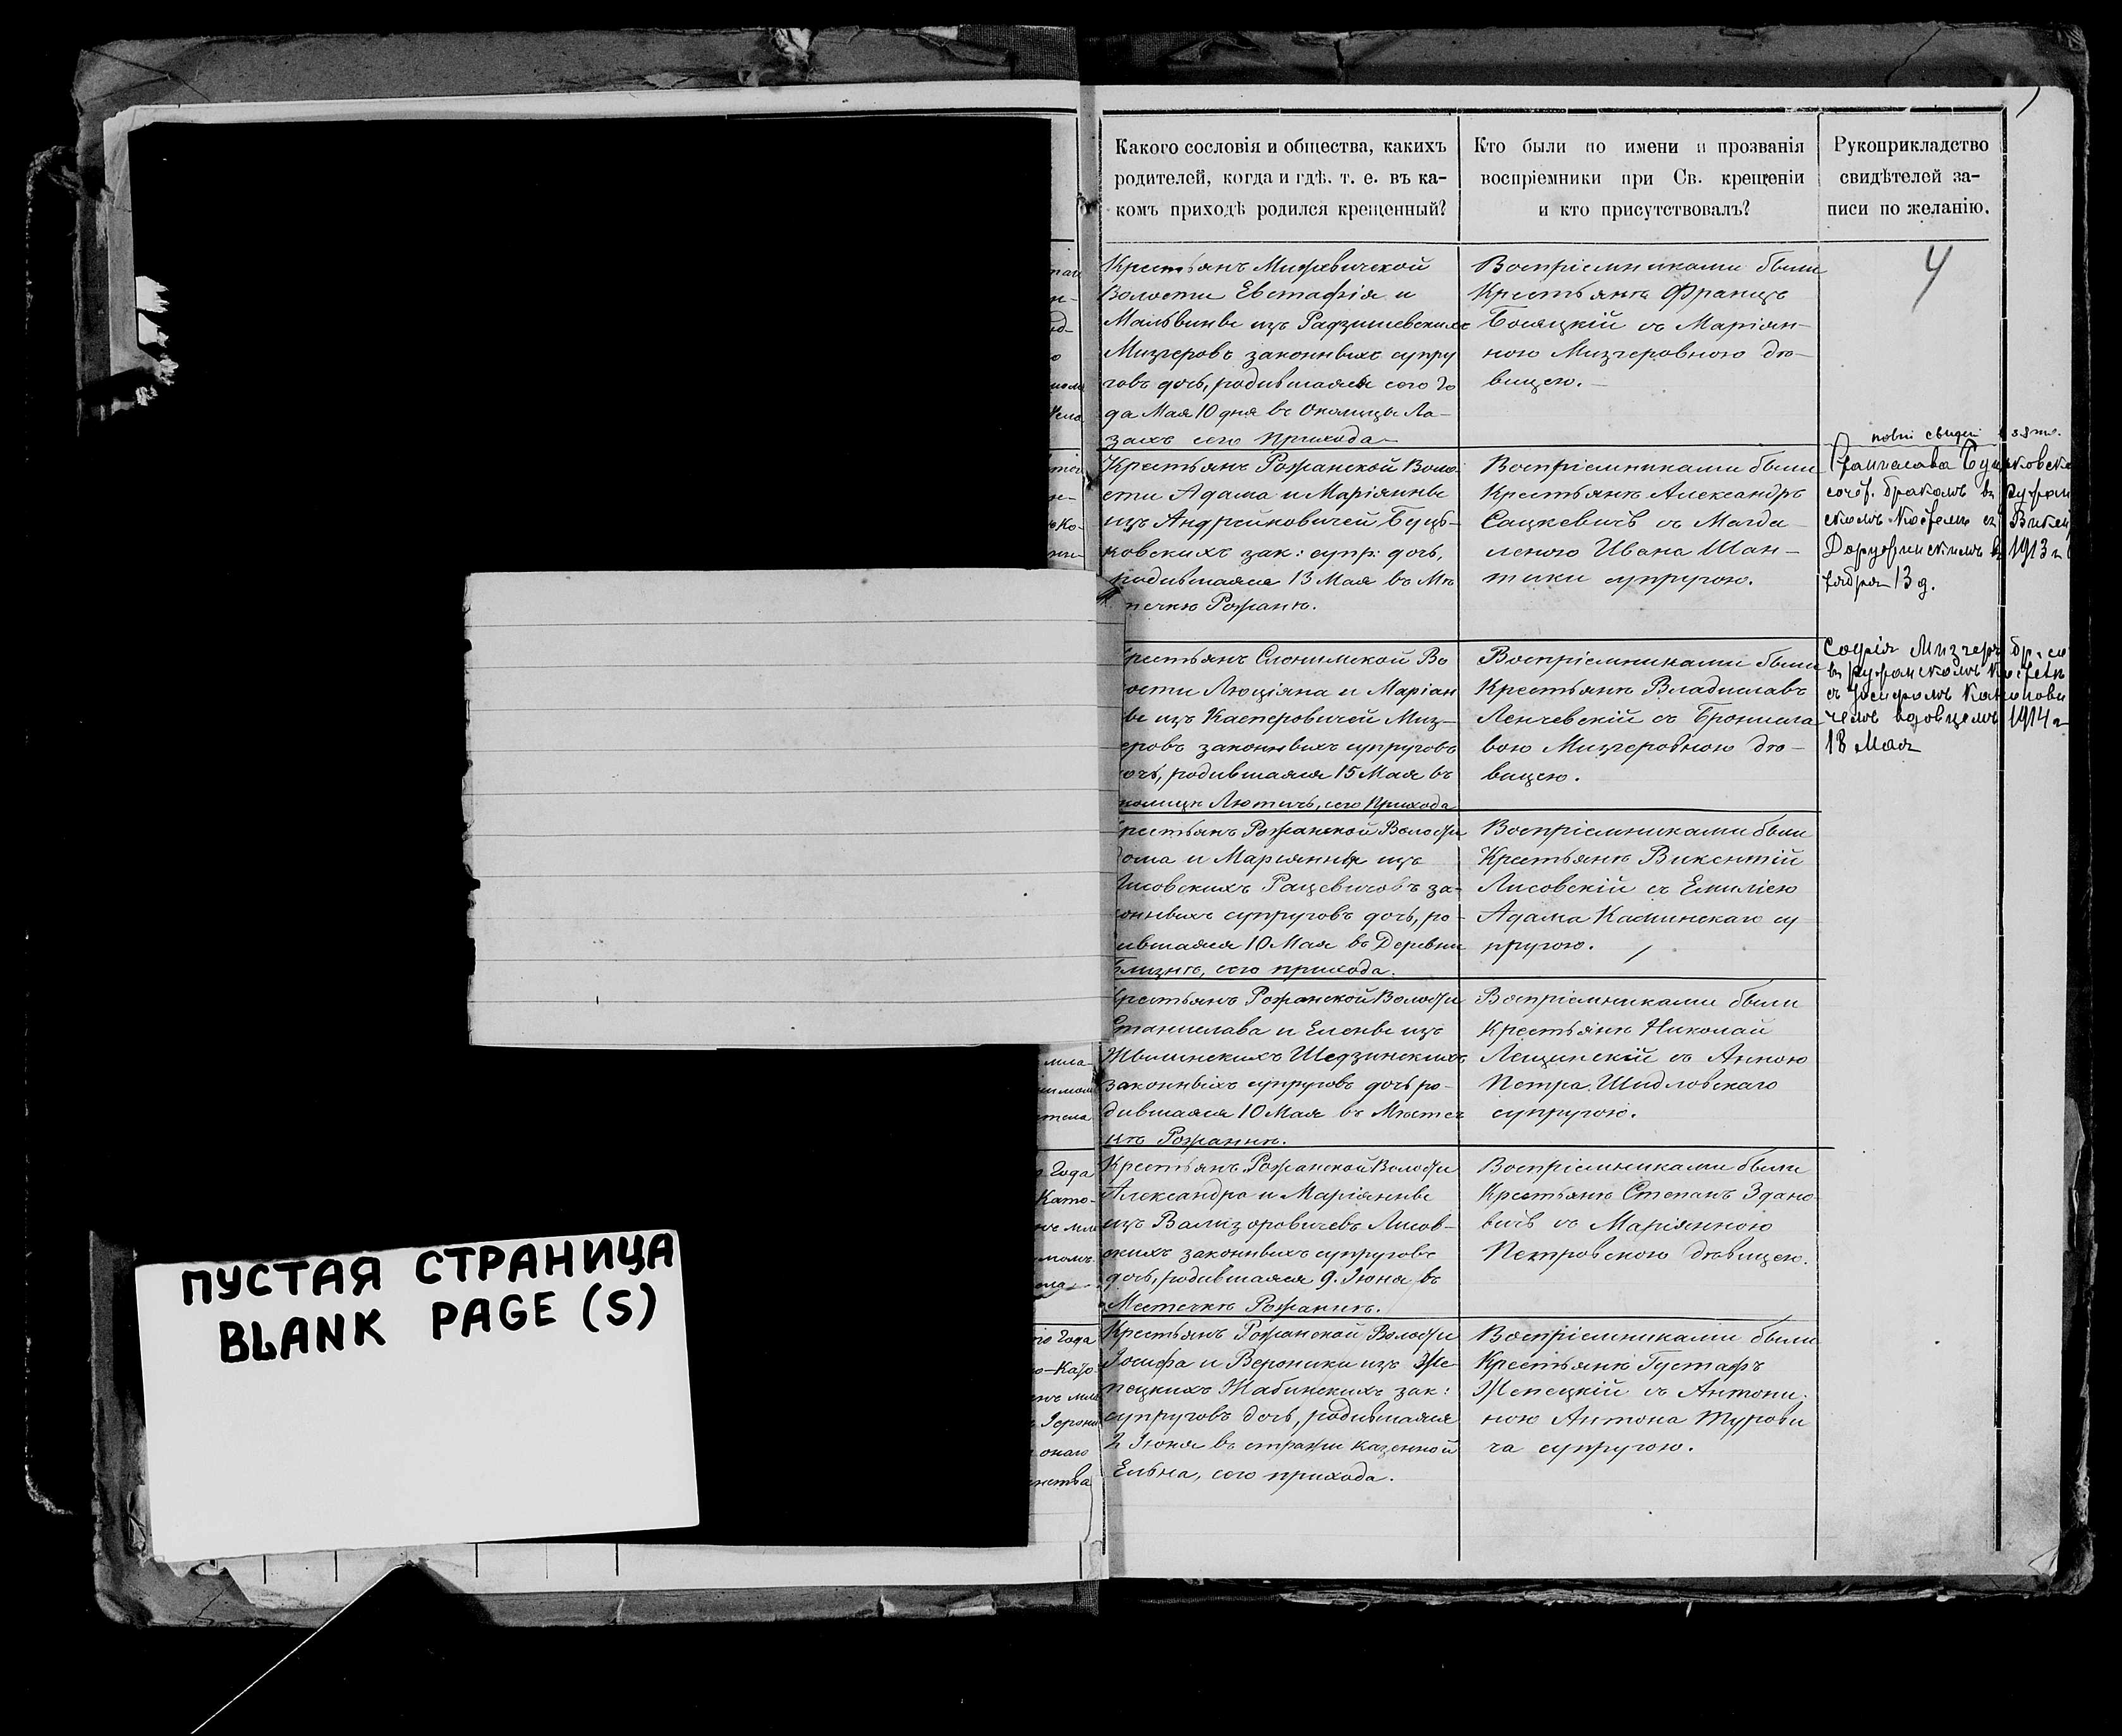 Какого сословія и общества, какихъ
родителей, когда и гдѣ. т. е. въ ка-
комъ приходѣ родился крещенный?
Кто были по имени и прозванія
воспріемники при Св. крещеніи
и кто присутствовалъ?
Рукоприкладство
свидѣтелей за-
писи по желанію.
4
Крестьянъ
Волости Евстафія и
Мальвины изъ
Мизгеровъ законныхъ супру
говъ дочь, родившаяся сего го
да Мая 10 дня въ Околицѣ Ла-
захъ сего Прихода
Воспріемниками были
Крестьяне Францъ
съ Маріян-
ною Мизгеровною дѣ-
вицею.
Крестьянъ Рожанской Воло
сти Адама и Маріянны
изъ Андрейковичей Буць-
ковскихъ зак: супр: дочь,
родившаяся 13 Мая въ Мѣ
течкѣ Рожанѣ.
Воспріемниками были
Крестьяне Александръ
Сацкевичъ съ Магда
леною Ивана Шан-
тыки супругою.
1913 г
13 д.
рестьянъ Слонимской Во
ости Люціяна и Маріан
ы изъ Касперовичей Миз-
еровъ законныхъ супруговъ
очь, родившаяся 15 Мая въ
колицѣ Лютичъ, сего Прихода
Воспріемниками были
Крестьяне Владиславъ
Ленчевскій съ Бронисла
вою Мизгеровною дѣ-
вицею.
Софія Мизгеръ бр. со
съ Іосифомъ
вдовцемъ 1914 г
18 Мая
рестьянъ Рожанской Волости
дама и Маріянны изъ
Лисовскихъ Рацевичовъ за-
онныхъ супруговъ дочь, ро-
ившаяся 10 Мая въ Деревни
лизнѣ, сего прихода.
Воспріемниками были
Крестьяне Викентій
Лисовскій съ Емиліею
Адама Каминскаго су
пругою.
рестьянъ Рожанской Волости
Станислава и Елены изъ
Жвилинскихъ Шедзинскихъ
законныхъ супруговъ дочь ро-
дившаяся 10 Мая въ Мѣстеч
кѣ Рожаннѣ.
Воспріемниками были
Крестьяне Николай
Лещинскій съ Анною
Петра Шидловскаго
супругою.
Крестьянъ Рожанской Волости
Александра и Маріянны
изъ Лисов-
скихъ законныхъ супруговъ
дочь, родившаяся 9. Іюня въ
Местечкѣ Рожаннѣ.
Воспріемниками были
Крестьяне Степанъ Здано
вичъ съ Маріянною
Петровскою дѣвицею.
Крестьянъ Рожанской Волости
Іосифа и Вероники изъ Же
пецкихъ Жабинскихъ зак:
супруговъ дочь, родившаяся
2 Іюня въ стражи казенной
Ельна, сего прихода.
Воспріемниками были
Крестьяне Густафъ
Жепецкій съ Антони
ною Антона Турови
ча супругою.
ПУСТАЯ СТРАНИЦА
BLANK PAGE (S)